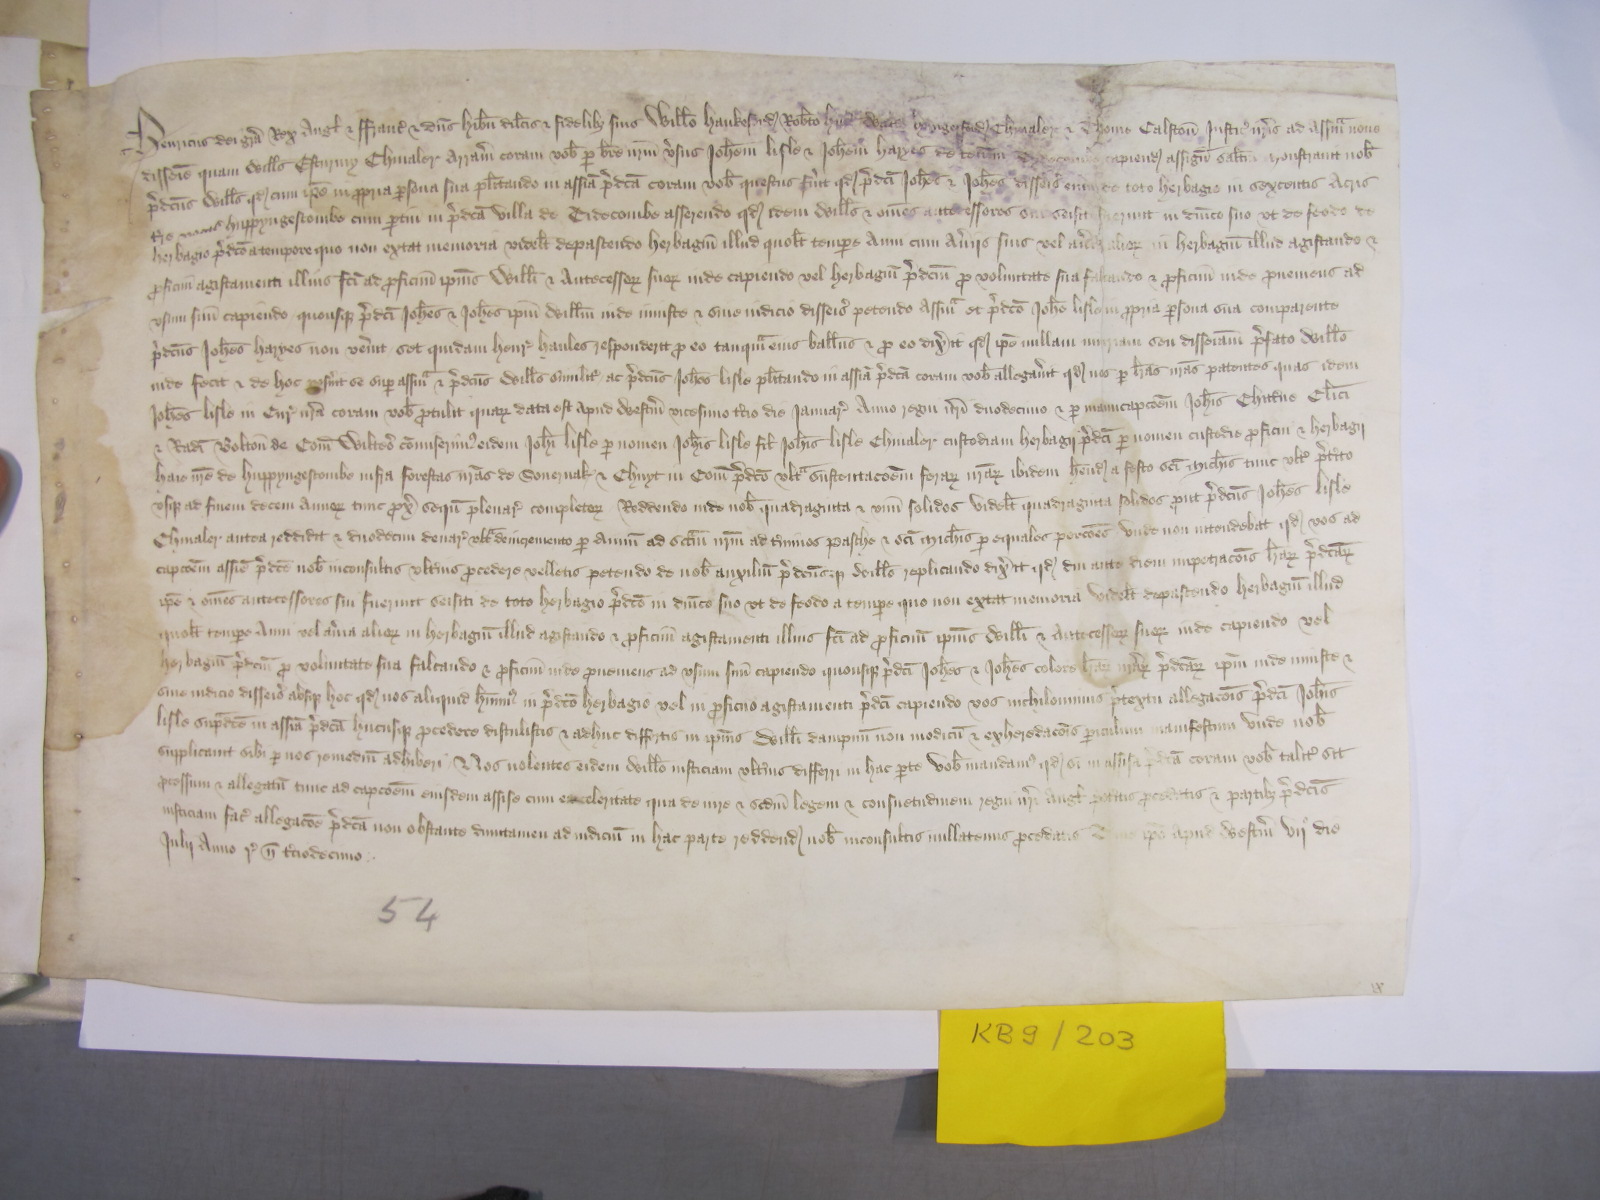 Henricus dei grã Rex Angł & ffranc̃ & dñs hibñ dilc̃is & fidelibȝ suis Willo hankeford Robto Chiualer & Thome Calston Justic̃ nr̃is ad assiam noue
disseiẽ quam Wills Esturmy Chiualer Arram̃ coram vob̃ p br̃e nr̃m v̾sus Joh̃em lisle & Joh̃em harres de capiend assigñ sal̃tm monstrauit nob̃
p̃dc̃us Wills qd cum ip̃e in ꝓpria p̱sona sua plitando in assia p̃dc̃a coram vob̃ questus fuit qd p̃dc̃i Joh̃es & Joh̃es disseis̃ eum de toto herbagio in sexcentis Acris
t̾re vocat̃ huppyngescombe cum ptin̄ in p̃dc̃a villa de Tidecombe asserendo qd idem Wills & om̃es antecessores sui seisiti fuerunt in dñico suo vt de feodo de
herbagio p̃dc̃o a tempore quo non extat memoria videlt depascendo herbagiũ illud quolt tempe Anni cum Aũiis suis vel herbagiũ illud agistando &
ꝓficuũ agistamenti illius fc̃i ad ꝓficuũ ip̃ius Willi & Antecessoꝝ suoꝝ inde capiendo vel herbagiũ p̃dc̃um ꝓ voluntate sua falcando & ꝓficuũ inde ꝓueniens ad
vsum suũ capiendo quousqȝ p̃dc̃i Joh̃es & Joh̃es ip̃m Willm inde iniuste & sine iudicio disseis̃ petendo Assiam et p̃dc̃o Joh̃e lisle in ꝓpria p̱sona sua comparente
p̃dc̃us Joh̃es harres non venit set quidam henr̃ haules respondebit ꝓ eo tanqũ eius ballius & ꝓ eo dixit qd ip̃e nullam iniuriam seu disseiam p̃fato Willo
inde fecit & de hoc posuit se sup assiam & p̃dc̃us Wills similit̾ ac p̃dc̃us Joh̃es lisle plitando in assia p̃dc̃a coram vob̃ allegauit qd nos p lr̃as nr̃as patentes quas idem
Joh̃es lisle in Cur̃ nr̃a coram vob̃ ꝓtulit quaꝝ data est apud Westm̃ vicesimo t̾cio die Januar̃ Anno regni nr̃i duodecimo & p manucapcõem Joh̃is Clic̃i
& Radi Bolton de Com̃ Wiltes̃ cõmiserim̾ eidem Joh̃i lisle p nomen Joh̃is lisle fil Joh̃is lisle Chiualer custodiam herbagii p̃dc̃i p nomen custodie ꝓficui & herbagii
haie nr̃e de huppyngescombe infra forestas nr̃as de Sauernak & Chuyt in Com̃ p̃dc̃o vlt̾ sustentacõem feraꝝ nr̃aꝝ ibidem hend a festo sc̃i Mich̃is tunc vlt̾ p̃t̾ito
vsqȝ ad finem decem Annoꝝ tunc ꝓx̃ sequen̄ plenar̃ completoꝝ Reddendo inde nob̃ quadraginta & vnũ solidos videlt quadraginta solidos put p̃dc̃us Joh̃es lisle
Chiualer antea reddidit & duodecim denar̃ vlt̾ de incremento p Annũ ad sc̃cm̃ nr̃m ad t̾minos pasche & sc̃i Mich̃is p equales porcões vnde non intendebat qd vos ad
capcõem assise p̃dc̃e nob̃ inconsultis vlt̾ius ꝓcedere velletis petendo de nob̃ auxiliũ p̃dc̃usqȝ Wills replicando dixit qd diu ante diem impetracõis lr̃aꝝ p̃dc̃aꝝ
ip̃e & om̃es antecessores sui fuerunt seisiti de toto herbagio p̃dc̃o in dñico suo vt de feodo a tempe quo non extat memoria videlt depascendo herbagiũ illud
quolt tempe Anni vel aũia alioꝝ in herbagiũ illud agistando & ꝓficuũ agistamenti illius fc̃i ad ꝓficuũ ip̃ius Willi & Antecessoꝝ suoꝝ inde capiendo vel
herbagiũ p̃dc̃um ꝓ voluntate sua falcando & ꝓficuũ inde ꝓueniens ad vsum suũ capiendo quousqȝ p̃dc̃i Joh̃es & Joh̃es colore lr̃aꝝ nr̃aꝝ p̃dc̃aꝝ ip̃m inde iniuste &
sine iudicio disseis̃ absqȝ hoc qd nos aliquid h̃uim̾ in p̃dc̃o herbagio vel in ꝓficuo agistamenti p̃dc̃i capiendo vos nichilominus p̃textu allegacõis p̃dc̃i Joh̃is
lisle sup̃dc̃e in assia p̃dc̃a hucusqȝ ꝓcedere distulistis & adhuc differtis in ip̃ius Willi dampnũ non modicũ & exheredacõis piculum manifestum vnde nob̃
supplicauit sibi p nos remediũ adhiberi Nos nolentes eidem Willo iusticiam vlt̾ius differri in hac pte vob̃ mandam̾ qd si in assisa p̃dc̃a coram vob̃ talit̾ sit
ꝓcessum & allegatũ tunc ad capcõem eiusdem assise cum ea celeritate qua de iure & scdm̃ legem & consuetudinem regni nr̃i Angł potitis ꝓcedatis & partibȝ p̃dc̃is
iusticiam fac̃ allegacõe p̃dc̃a non obstante dumtamen ad iudiciũ in hac parte reddend nob̃ inconsultis nullatenus ꝓcedatis T me ip̃o apud Westm̃ vij° die
Julij Anno r̃ n̄ t̾ciodecimo
54
KB9/203